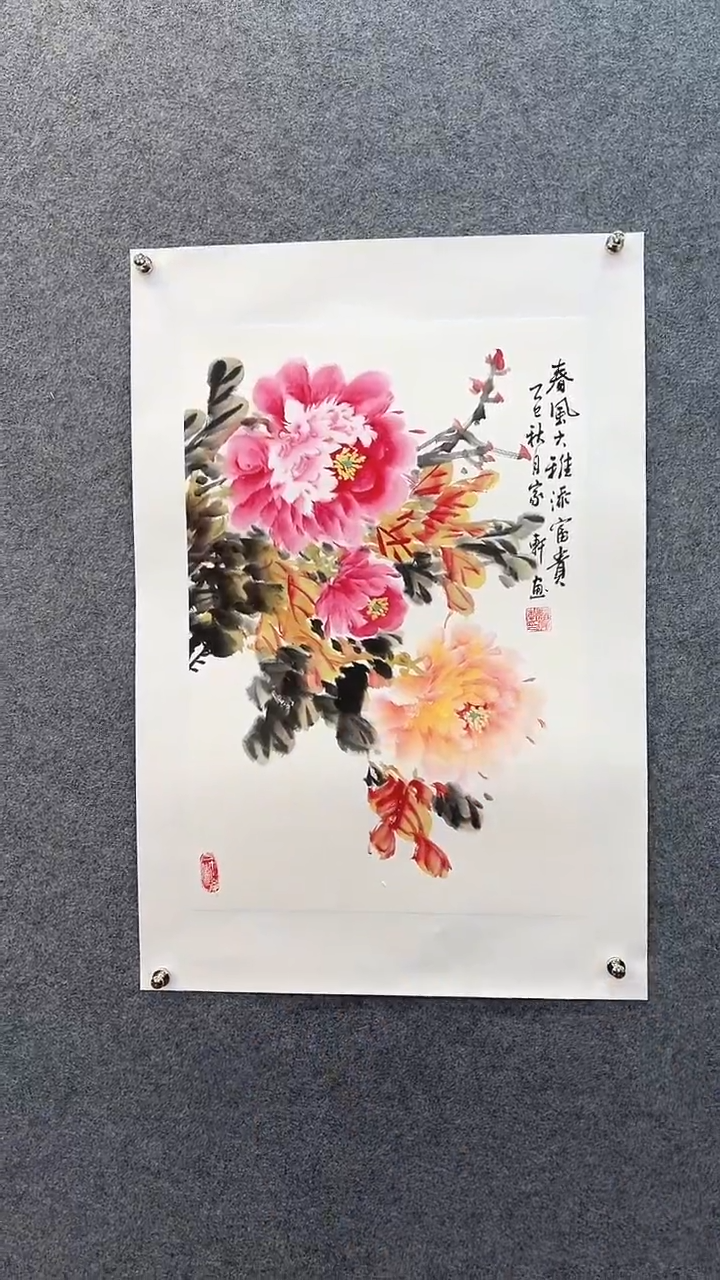 春風大雅添富貴
乙巳秋月家軒画